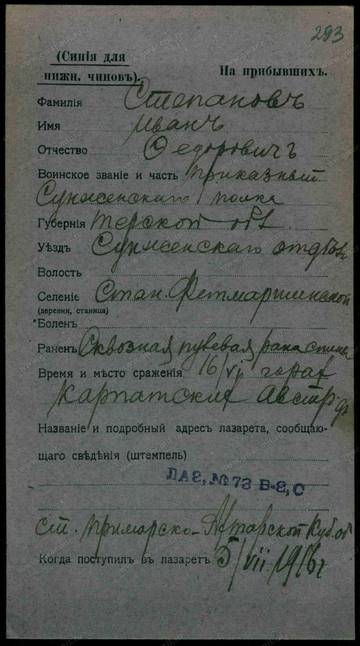 293
(Синія для
нижн. чиновъ).
На прибывшихъ.
Фамилія Степановъ
Имя Иванъ
Отчество Ѳедоровичъ
Воинское званіе и часть приказный
Сунженскаго полка
Губернія Терской обл
Уѣздъ Сунженскаго отдѣла
Волость
Селеніе Стан. Фельтмаршевской
(деревня, станица)
*Боленъ
Раненъ Сквозная пулевая рана спины
Время и мѣсто сраженія 16/VI горах
Карпатские Австр
Названіе и подробный адресъ лазарета, сообщаю-
щаго свѣдѣнія (штемпель)
ЛАЗ, № 73 В-З, С
ст. Приморско-Ахтарской Куб. об
Когда поступилъ въ лазаретъ 5/VII 1916 г